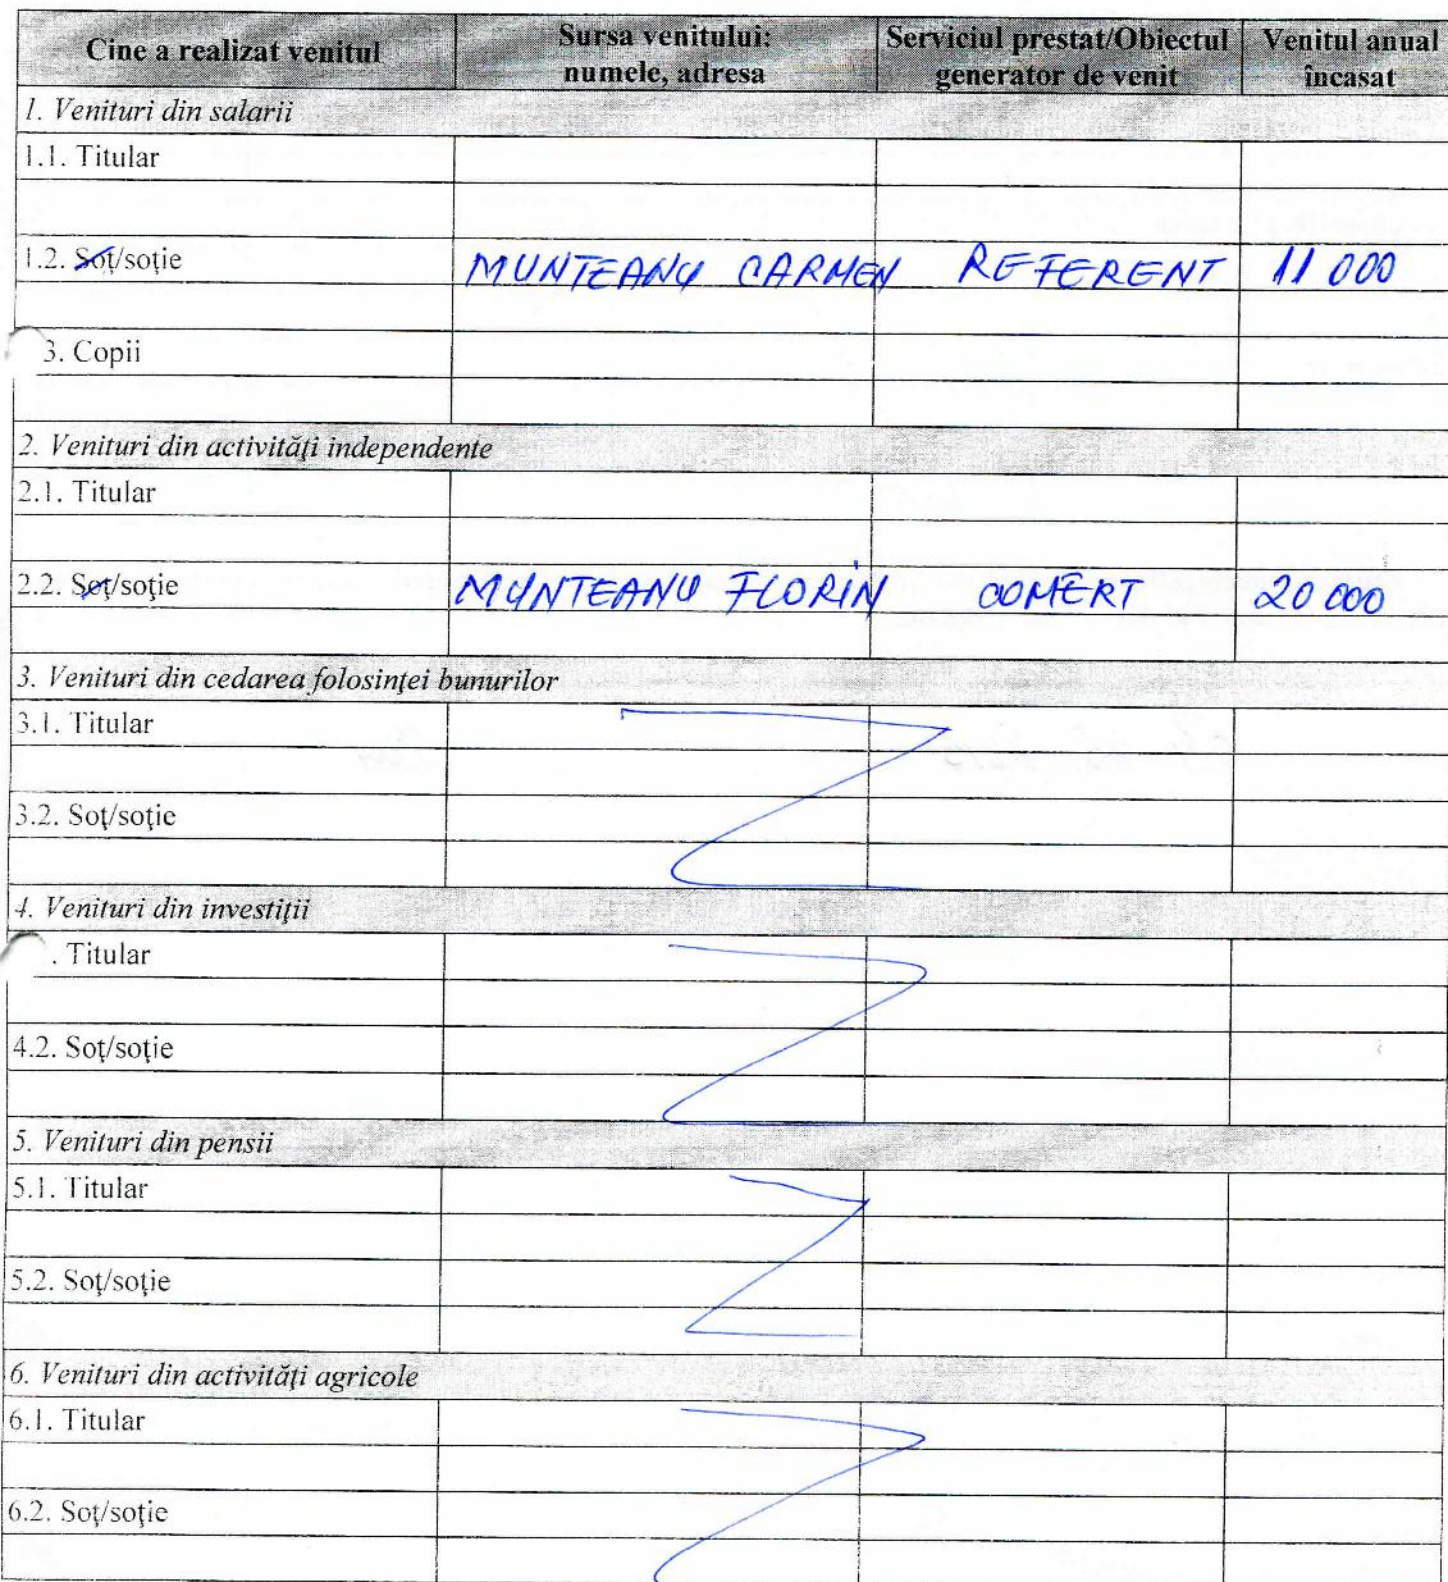 Cine a realizat venitul
Sursa venitului:
numele, adresa
Serviciul prestat/Obiectul
generator de venit
Venitul anual
încasat
1. Venituri din salarii
1.1. Titular
1.2. Soţ/soţie MUNTEANU CARMEN REFERENT 11 000
3. Copii
2. Venituri din activităţi independente
2.1. Titular
2.2. Soţ/soţie MUNTEANU FLORIN COMERT 20 000
3. Venituri din cedarea folosinţei bunurilor
3.1. Titular
3.2. Soţ/soţie
4. Venituri din investiţii
. Titular
4.2. Soţ/soţie
5. Venituri din pensii
5.1. Titular
5.2. Soţ/soţie
6. Venituri din activităţi agricole
6.1. Titular
6.2. Soţ/soţie